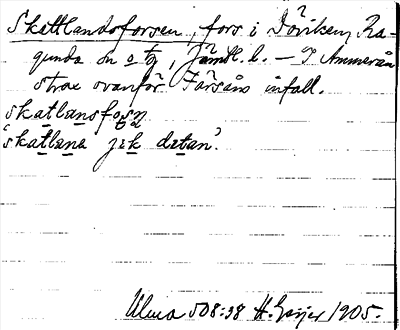 Skattlandsforsen, fors i Döviken, Ra-
gunda sn o tg, Jämtl. l. – I Ammerån
strax ovanför Färsåns infall.
skatlansfosn
'skatlana jek detan'.
Ulma 508:38 H. Geijer 1905.